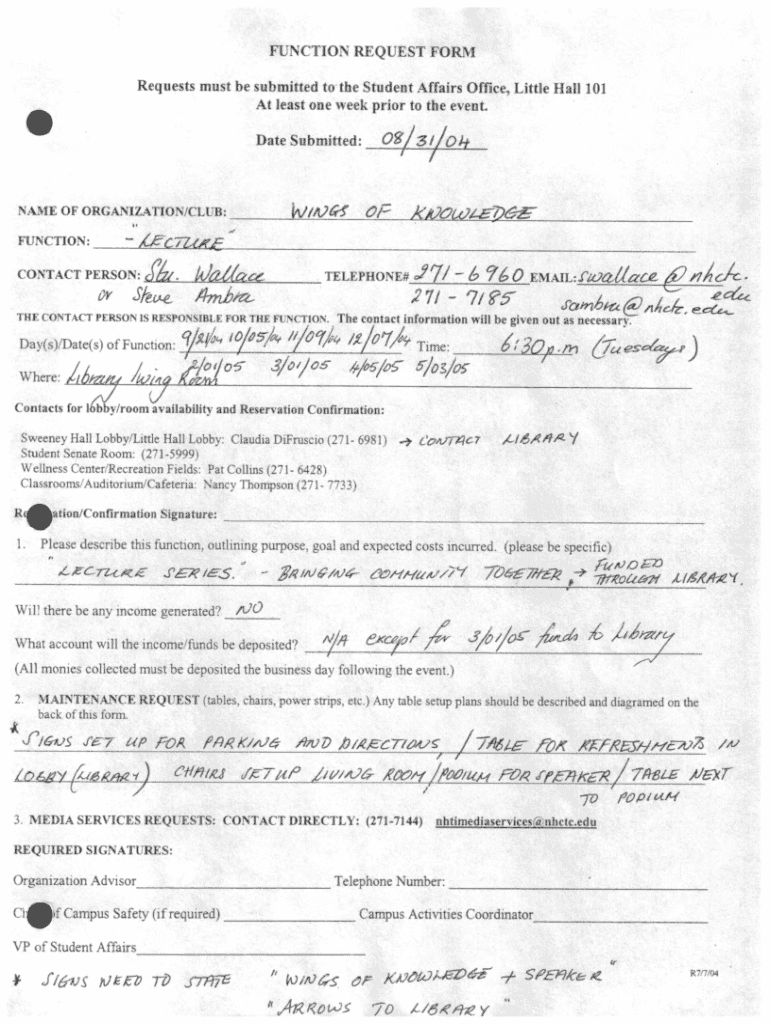 FUNCTION REQUEST FORM
Requests must be submitted to the Student Affairs Office, Little Hall 101
At least one week prior to the event.
Date Submitted: 08/31/04
NAME OF ORGANIZATION/CLUB: WINGS OF KNOWLEDGE
FUNCTION: - "LECTURE"
CONTACT PERSON: Stu. Wallace TELEPHONE# 271-6960 EMAIL: swallace@nhctc.edu
or Steve Ambra 271-7185 sambra@nhctc.edu
THE CONTACT PERSON IS RESPONSIBLE FOR THE FUNCTION. The contact information will be given out as necessary.
Day(s)/Date(s) of Function: 9/21/04 10/05/04 11/09/04 12/07/04 Time: 6:30 p.m (Tuesdays)
2/01/05 3/01/05 4/05/05 5/03/05
Where: Library living Room
Contacts for lobby/room availability and Reservation Confirmation:
Sweeney Hall Lobby/Little Hall Lobby: Claudia DiFruscio (271- 6981) → CONTACT LIBRARY
Student Senate Room: (271-5999)
Wellness Center/Recreation Fields: Pat Collins (271- 6428)
Classrooms/Auditorium/Cafeteria: Nancy Thompson (271- 7733)
ation/Confirmation Signature:
1. Please describe this function, outlining purpose, goal and expected costs incurred. (please be specific)
"LECTURE SERIES." - BRINGING COMMUNITY TOGETHER, → FUNDED THROUGH LIBRARY.
Will there be any income generated? NO
What account will the income/funds be deposited? N/A except for 3/01/05 funds to Library
(All monies collected must be deposited the business day following the event.)
2. MAINTENANCE REQUEST (tables, chairs, power strips, etc.) Any table setup plans should be described and diagramed on the
back of this form.
* SIGNS SET UP FOR PARKING AND DIRECTIONS, / TABLE FOR REFRESHMENTS IN
LOBBY (LIBRARY) CHAIRS SET UP LIVING ROOM / PODIUM FOR SPEAKER / TABLE NEXT
TO PODIUM
3. MEDIA SERVICES REQUESTS: CONTACT DIRECTLY: (271-7144) nhtimediaservices@nhctc.edu
REQUIRED SIGNATURES:
Organization Advisor Telephone Number:
of Campus Safety (if required) Campus Activities Coordinator
VP of Student Affairs
* SIGNS NEED TO STATE "WINGS OF KNOWLEDGE + SPEAKER"
R7/7/04
"ARROWS TO LIBRARY"